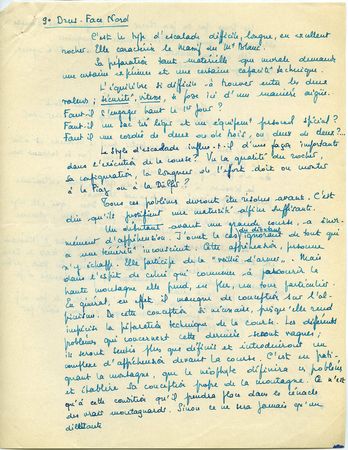 9. Drus - Face Nord
C'est le type d'escalade difficile, longue, en excellent
rocher. Elle caractérise le Massif du Mt Blanc.
La préparation tant matérielle que morale demande
une certaine expérience et une certaine capacité technique.
L'équilibre si difficile à trouver entre les deux
valeurs; sécurité, vitesse, se pose ici d'une manière aigüe.
Faut-il s'engager tard le 1er jour?
Faut-il un sac très léger et un équipement personnel spécial?
Faut-il une cordée de deux ou de trois, ou deux de deux?...
Le style d'escalade influe-t-il d'une façon importante
dans l'exécution de la course? Vu la qualité du rocher,
la configuration, la longueur de l'effort doit on monter
à la Piaz ou à la Dülfer?
Tous ces problèmes doivent être résolus avant. C'est
dire qu'ils justifient une maturité alpine suffisante.
Un débutant avant une grande course, a énor-
mément d'appréhension. J'omet le cas du débutant ignorant de tout qui
a une témérité inconsciente. Cette appréhension, personne
n'y échappe. Elle participe de la "veillée d'armes"... Mais
dans l'esprit de celui qui commence à parcourir la
haute montagne elle prend, en plus, un tour particulier.
En général, en effet il manque de conception sur l'al-
pinisme. De cette conception si nécessaire, puisqu'elle rend
implicite la préparation technique de la course. Les différents
problèmes qui concernent cette dernière seront vagues;
ils seront sentis plus que définis et introduiront un
complexe d'appréhension devant la course. C'est en prati-
quant la montagne, que le néophyte définira ces problèmes
et établira sa conception propre de la montagne. Ce n'est
qu'à cette condition qu'il prendra place dans le cénacle
des vrais montagnards. Sinon ce ne sera jamais qu'un
dilettante